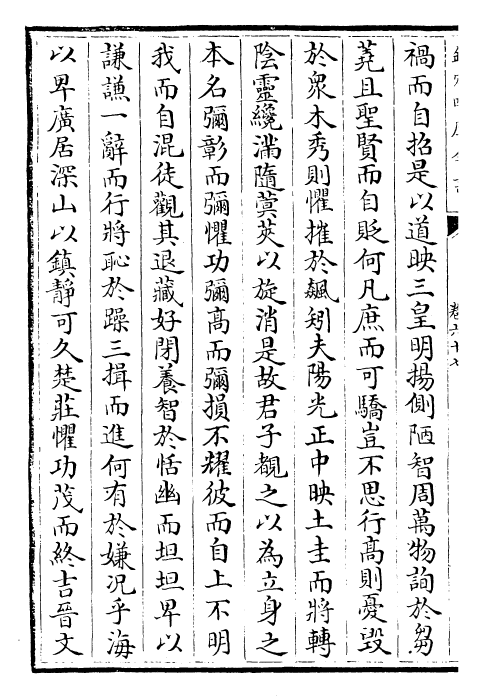 禍而自招是以道映三皇明揚側陋智周萬物詢於芻
蕘且聖賢而自貶何凡庶而可驕豈不思行髙則憂毁
於衆木秀則懼摧於飆矧夫陽光正中映土圭而將轉
陰靈纔滿隨蓂莢以旋消是故君子覩之以為立身之
本名彌彰而彌懼功彌髙而彌損不耀彼而自上不明
我而自混徒觀其退藏好閉養智於恬幽而坦坦卑以
謙謙一辭而行將恥於躁三揖而進何有於嫌况乎海
以卑廣居深山以鎮靜可久楚莊懼功茂而終吉晉文